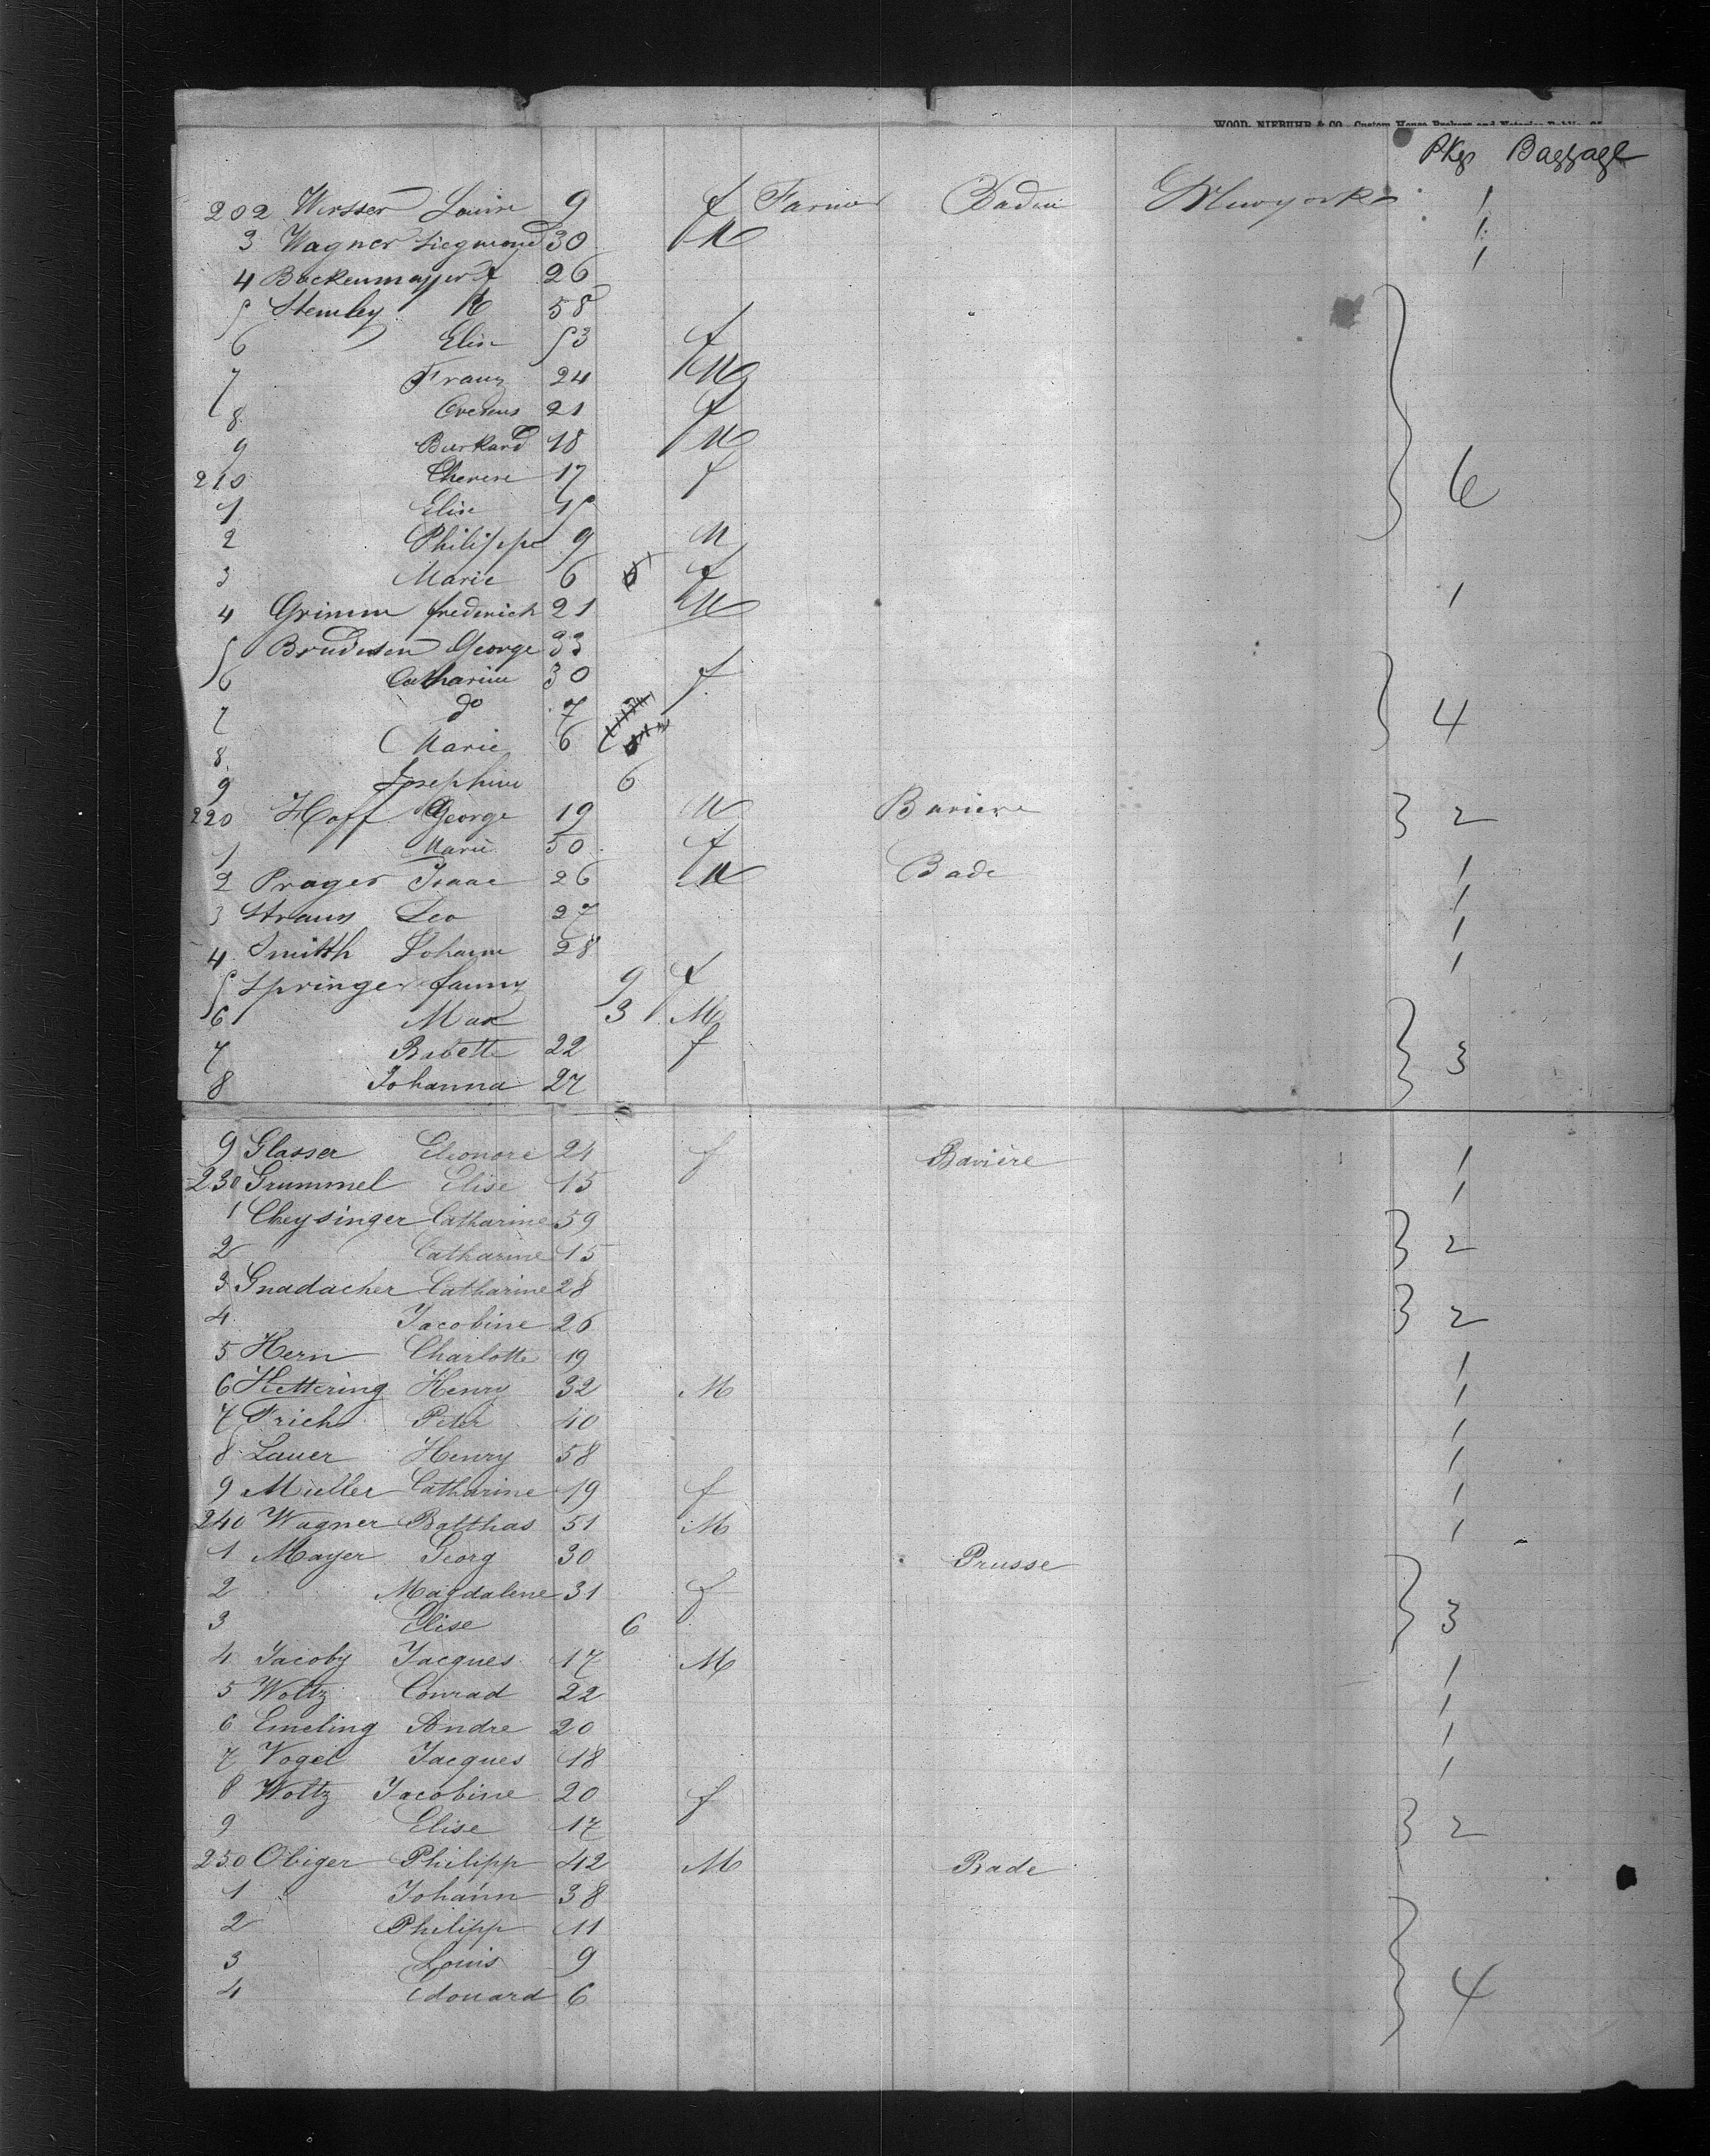 WOOD, NIEBUHR & CO. Custom House Brokers and Notaries Public
Pkgs Baggage
202 Wersser Louise 9 f Farmer Baden Newyork 1
3 Wagner Siegmond 30 M 1
4 Backenmayer 26 1
5 Stemley 58
6 Elise 53 f
7 Franz 24 M
8 21 f
9 Burkard 18 M
210 Therese 17 f 6
1 Elise 15
2 Philippe 9 M
3 Marie 6 f
4 Grimm frederich 21 M 1
5 George 33
6 Catharine 30 f
7 do 7 4
8 Marie 6
9 Josephine 6
220 Hoff George 19 M Baviere 2
1 Marie 50 f
2 Prager Isaac 26 M Bade 1
3 Straus Leo 27 1
4 Smitth Johann 28 1
5 Springer fanny 9 f 1
6 Max 3 M
7 Babette 22 f 3
8 Johanna 27
9 Glasser Eleonore 24 f Bavière 1
230 Grummel Elise 15 1
1 Cheysinger Catharine 59
2 Catharine 15 2
3 Gnadacher Catharine 28
4 Jacobine 26 2
5 Hern Charlotte 19 1
6 Hettering Henry 32 M 1
7 Frich Peter 40 1
8 Lauer Henry 58 1
9 Müller Catharine 19 f 1
240 Wagner Balthas 51 M 1
1 Mayer Georg 30 Prusse
2 Magdalene 31 f
3 Elise 6 3
4 Jacoby Jacques 17 M 1
5 Woltz Conrad 22 1
6 Emeling Andre 20 1
7 Vogel Jacques 18 1
8 Woltz Jacobine 20 f
9 Elise 17 2
250 Obiger Philipp 42 M Bade
1 Johann 38
2 Philipp 11
3 Louis 9
4 Edouard 6 4